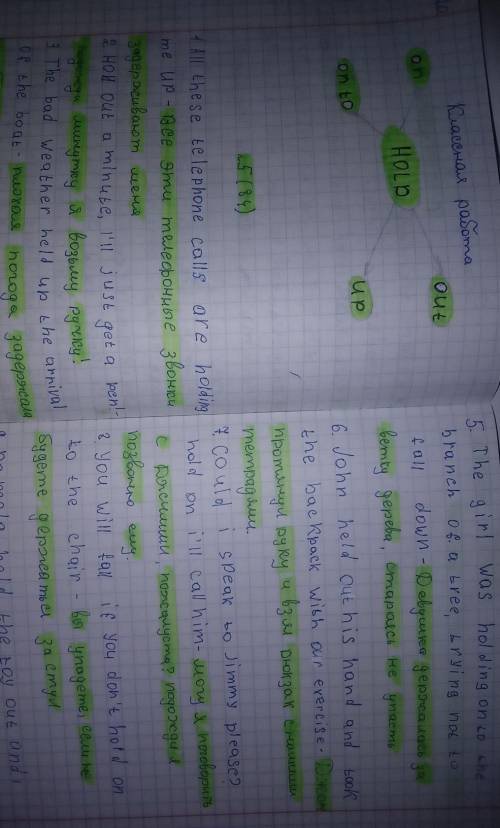 Классная работа
HOLD
on
on to
out
up
L5 (84)
1 All these telephone calls are holding
me up - Все эти телефонные звонки
задерживают меня
2 Holl out a minute, I'll just get a pen! -
минутку я возьму ручку!
3 The bad weather held up the arrival
of the boat - плохая погода задержала
5. The girl was holding on to the
branch of a tree, trying not to
fall down - Девушка держалась за
ветку дерева, стараясь не упасть
6. John held out his hand and took
the backpack with our exercise - Джон
протянул руку и взял рюкзак с нашими
тетрадями.
7 Could i speak to Jimmy please?
hold on i'll call him - могу я поговорить
с Джимми, пожалуйста? подожди я
позвоню ему.
2 you will fall if you don't hold on
to the chair - вы упадете, если не
будете держаться за стул
hold the toy out and i